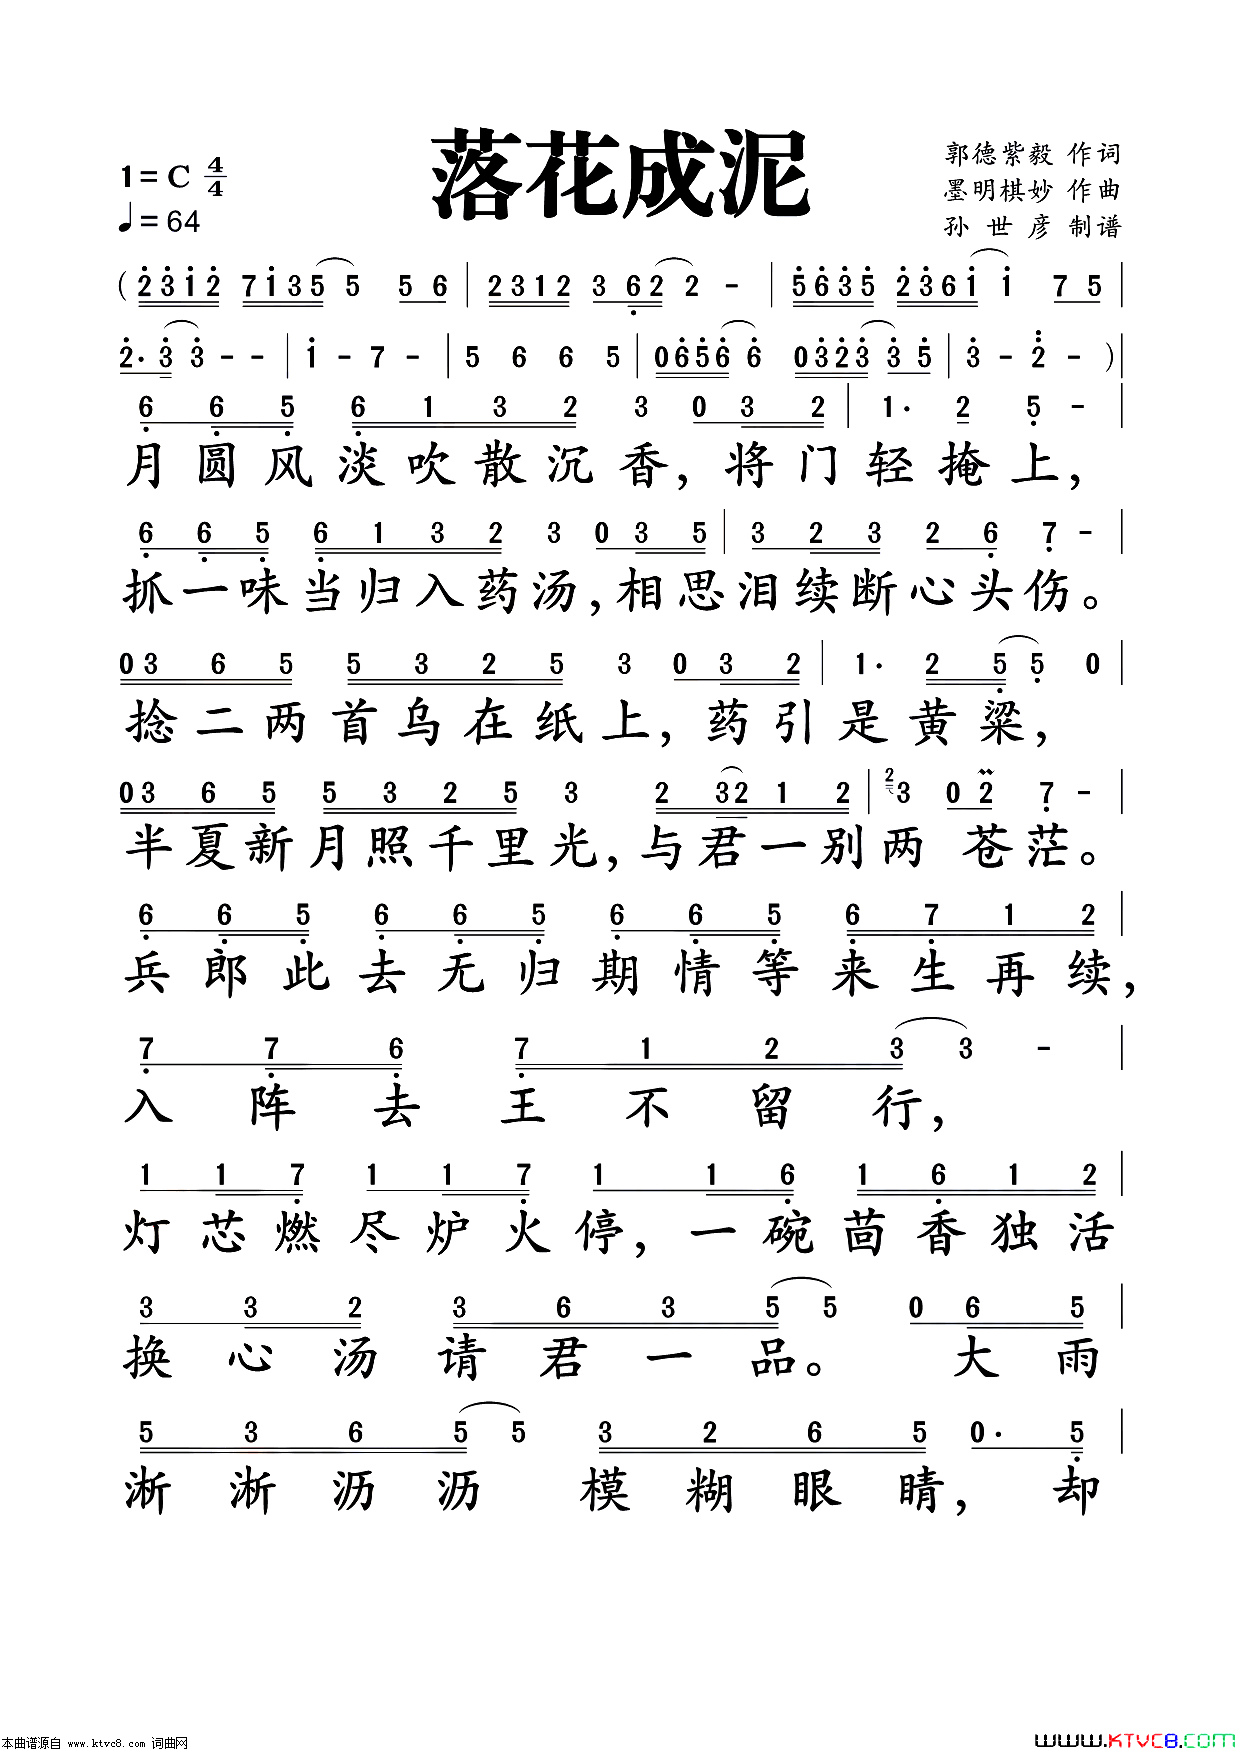 落花成泥
1=C 4/4
♩=64
郭德紫毅 作词
墨明棋妙 作曲
孙世彦 制谱
( 2 3 1 2 7 1 3 5 5 5 6 | 2 3 1 2 3 6 2 2 - | 5 6 3 5 2 3 6 1 1 7 5 |
2· 3 3 - - | 1 - 7 - | 5 6 6 5 | 0 6 5 6 6 0 3 2 3 3 5 | 3 - 2 - ) |
6 6 5 6 1 3 2 3 0 3 2 | 1· 2 5 - |
月圆风淡吹散沉香,将门轻掩上,
6 6 5 6 1 3 2 3 0 3 5 | 3 2 3 2 6 7 - |
抓一味当归入药汤,相思泪续断心头伤。
0 3 6 5 5 3 2 5 3 0 3 2 | 1· 2 5 5 0 |
捻二两首乌在纸上,药引是黄粱,
0 3 6 5 5 3 2 5 3 2 3 2 1 2 | 2 3 0 2 7 - |
半夏新月照千里光,与君一别两苍茫。
6 6 5 6 6 5 6 6 5 6 7 1 2 |
兵郎此去无归期情等来生再续,
7 7 6 7 1 2 3 3 - |
入阵去王不留行,
1 1 7 1 1 7 1 1 6 1 6 1 2 |
灯芯燃尽炉火停,一碗茴香独活
3 3 2 3 6 3 5 5 0 6 5 |
换心汤请君一品。大雨
5 3 6 5 5 3 2 6 5 0· 5 |
淅淅沥沥模糊眼睛,却
本曲谱源自 www.ktvc8.com 词曲网
WWW.KTVC8.COM